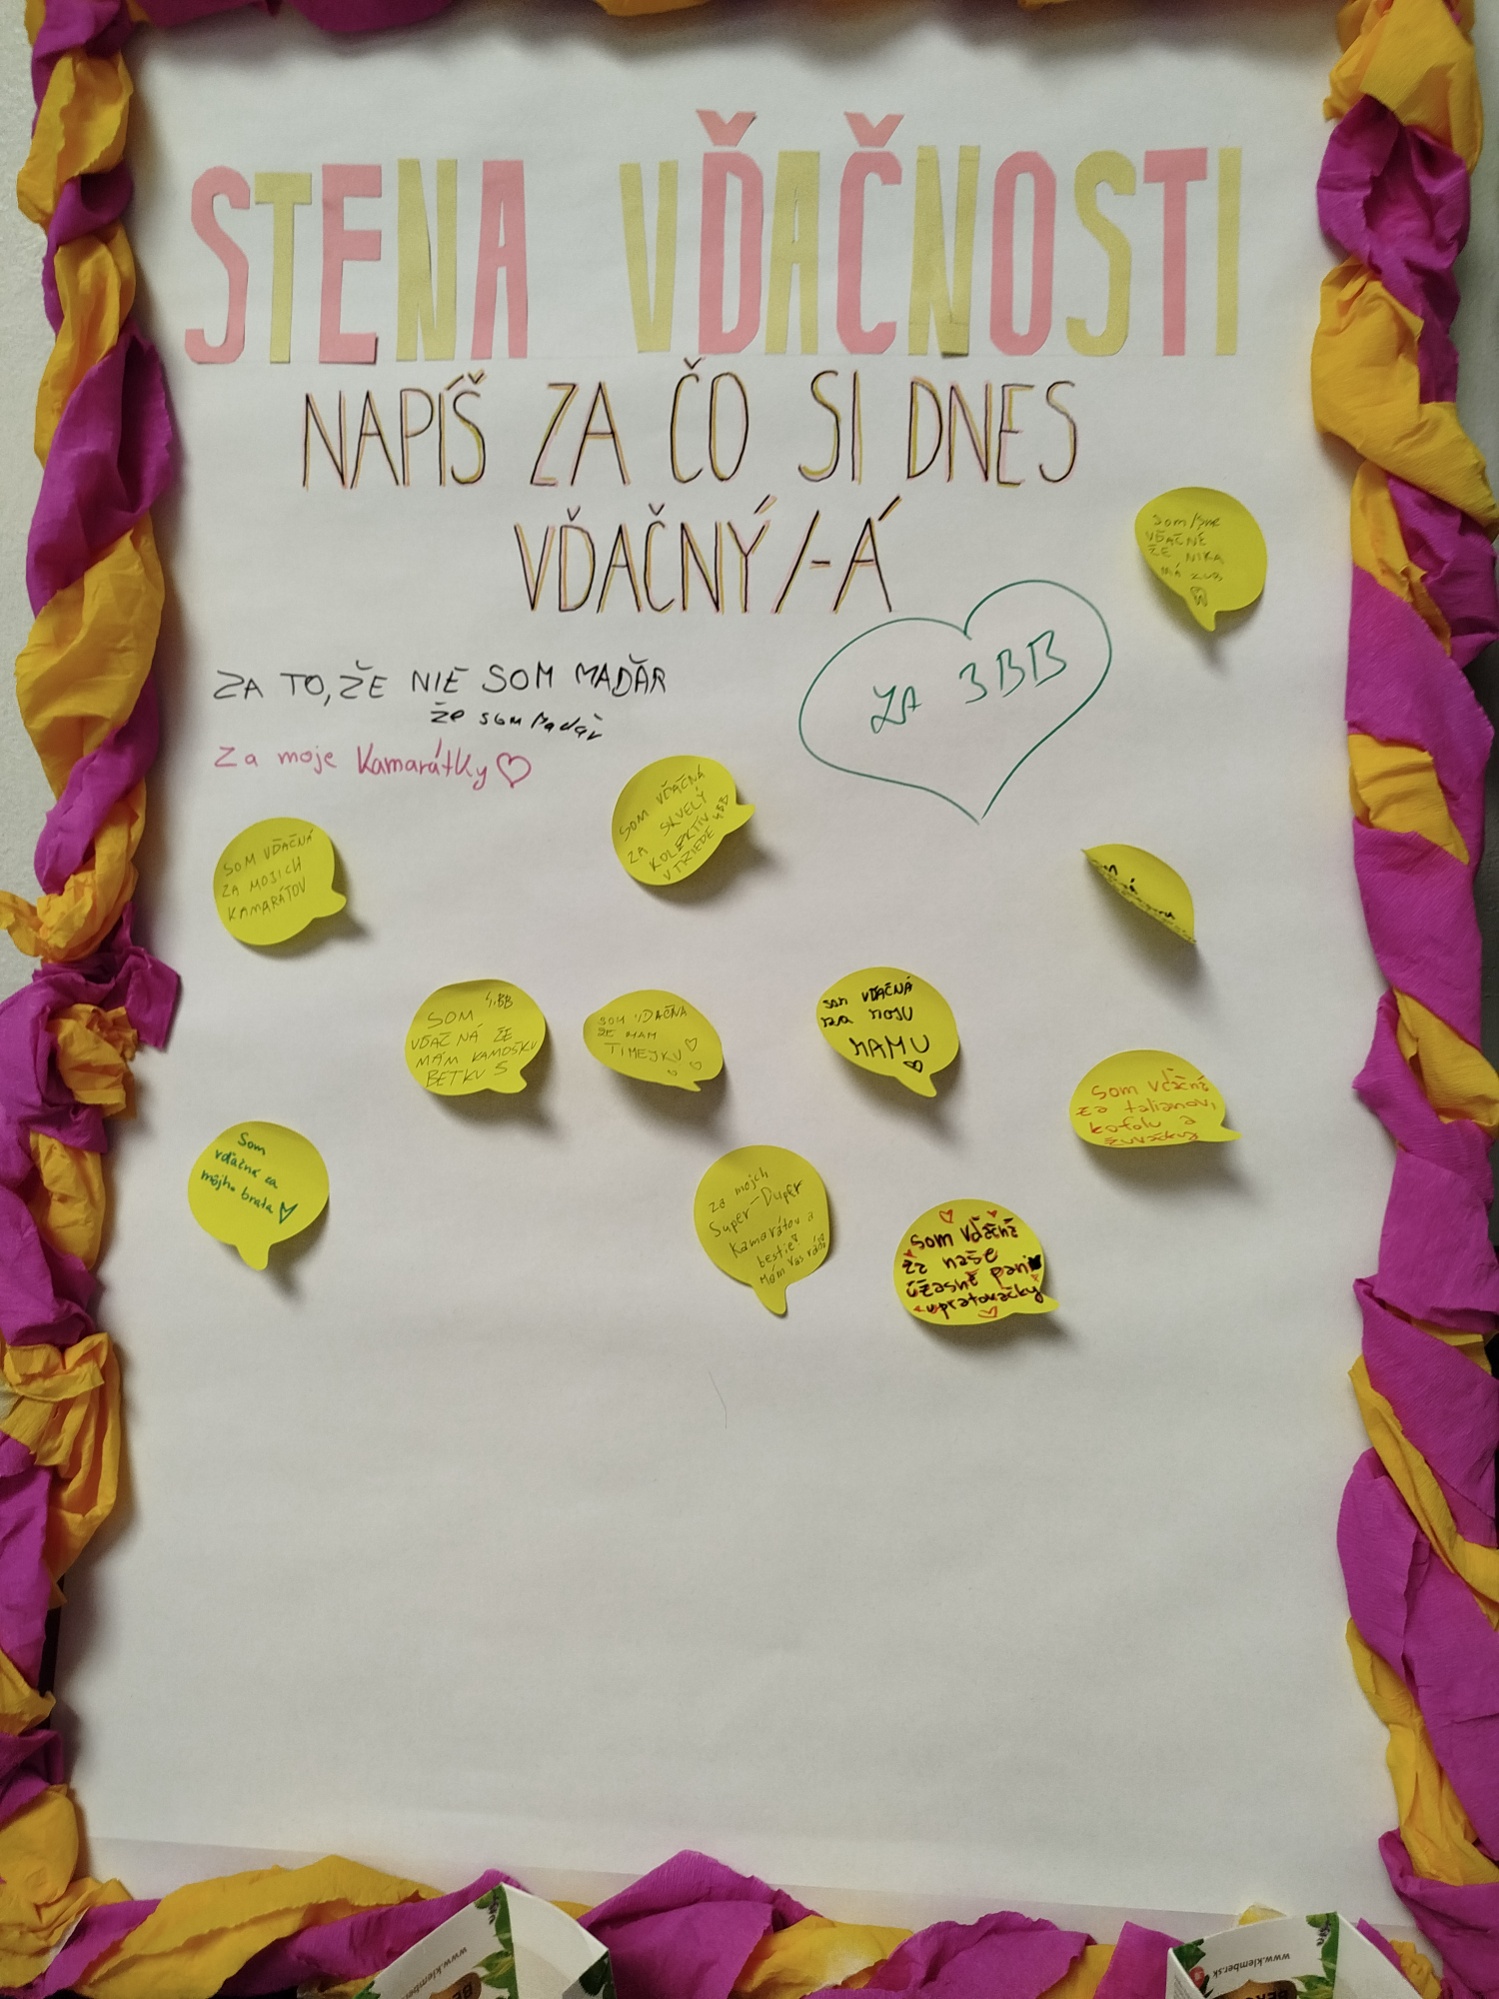 STENA VĎAČNOSTI
NAPÍŠ ZA ČO SI DNES
VĎAČNÝ/-Á
som/sme
VĎAČNÉ
ŽE NIKA
MÁ ZUB
ZA 3BB
ZA TO, ŽE NIE SOM MAĎAR
že som Maďar
Za moje Kamarátky
SOM VĎAČNÁ
ZA SKVELÝ
KOLEKTÍV
V TRIEDE 4BB
SOM VĎAČNÁ
ZA MOJICH
KAMARÁTOV
4.BB
SOM
VĎAČNÁ ŽE
MÁM KAMOŠKU
BETKU S
SOM VĎAČNA
ŽE MAM
TIMEJKU
som VĎAČNÁ
za moju
MAMU
Som vďačná
za talianov,
kofolu a
žuvačky
Som
vďačná za
môjho brata
za mojch
Super-Duper
Kamarátov a
bestie
Mám vás rád
som vďačná
za naše
úžasné pani
upratovačky
www.klember.sk
www.klember.sk